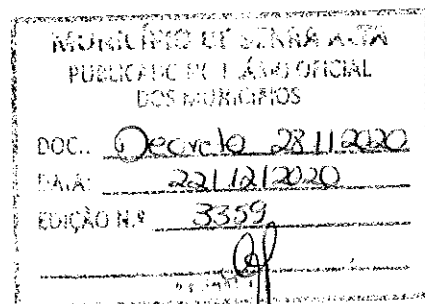 MUNICÍPIO DE SERRA ALTA
PUBLICADO NO DIÁRIO OFICIAL
DOS MUNICÍPIOS
DOC.: Decreto 281/2020
DATA: 22/12/2020
EDIÇÃO N.º 3359